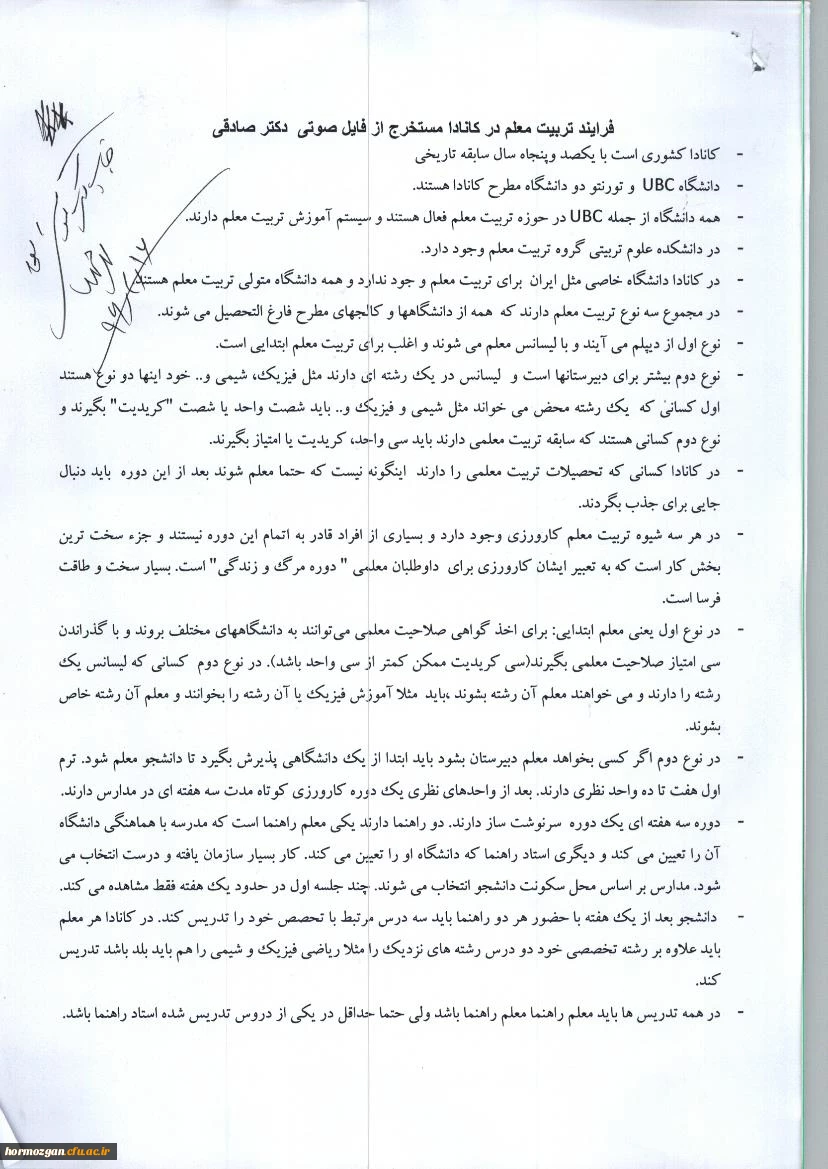 فرایند تربیت معلم در کانادا مستخرج از فایل صوتی دکتر صادقی
- کانادا کشوری است با یکصد وپنجاه سال سابقه تاریخی
- دانشگاه UBC و تورنتو دو دانشگاه مطرح کانادا هستند.
- همه دانشگاه از جمله UBC در حوزه تربیت معلم فعال هستند و سیستم آموزش تربیت معلم دارند.
- در دانشکده علوم تربیتی گروه تربیت معلم وجود دارد.
- در کانادا دانشگاه خاصی مثل ایران برای تربیت معلم و جود ندارد و همه دانشگاه متولی تربیت معلم هستند
- در مجموع سه نوع تربیت معلم دارند که همه از دانشگاهها و کالجهای مطرح فارغ التحصیل می شوند.
- نوع اول از دیپلم می آیند و با لیسانس معلم می شوند و اغلب برای تربیت معلم ابتدایی است.
- نوع دوم بیشتر برای دبیرستانها است و لیسانس در یک رشته ای دارند مثل فیزیک، شیمی و.. خود اینها دو نوع هستند
اول کسانی که یک رشته محض می خواند مثل شیمی و فیزیک و.. باید شصت واحد یا شصت "کریدیت" بگیرند و
نوع دوم کسانی هستند که سابقه تربیت معلمی دارند باید سی واحد، کریدیت یا امتیاز بگیرند.
- در کانادا کسانی که تحصیلات تربیت معلمی را دارند اینگونه نیست که حتما معلم شوند بعد از این دوره باید دنبال
جایی برای جذب بگردند.
- در هر سه شیوه تربیت معلم کارورزی وجود دارد و بسیاری از افراد قادر به اتمام این دوره نیستند و جزء سخت ترین
بخش کار است که به تعبیر ایشان کارورزی برای داوطلبان معلمی " دوره مرگ و زندگی" است. بسیار سخت و طاقت
فرسا است.
- در نوع اول یعنی معلم ابتدایی: برای اخذ گواهی صلاحیت معلمی می‌توانند به دانشگاههای مختلف بروند و با گذراندن
سی امتیاز صلاحیت معلمی بگیرند(سی کریدیت ممکن کمتر از سی واحد باشد). در نوع دوم کسانی که لیسانس یک
رشته را دارند و می خواهند معلم آن رشته بشوند ،باید مثلا آموزش فیزیک یا آن رشته را بخوانند و معلم آن رشته خاص
بشوند.
- در نوع دوم اگر کسی بخواهد معلم دبیرستان بشود باید ابتدا از یک دانشگاهی پذیرش بگیرد تا دانشجو معلم شود. ترم
اول هفت تا ده واحد نظری دارند. بعد از واحدهای نظری یک دوره کارورزی کوتاه مدت سه هفته ای در مدارس دارند.
- دوره سه هفته ای یک دوره سرنوشت ساز دارند. دو راهنما دارند یکی معلم راهنما است که مدرسه با هماهنگی دانشگاه
آن را تعیین می کند و دیگری استاد راهنما که دانشگاه او را تعیین می کند. کار بسیار سازمان یافته و درست انتخاب می
شود. مدارس بر اساس محل سکونت دانشجو انتخاب می شوند. چند جلسه اول در حدود یک هفته فقط مشاهده می کند.
- دانشجو بعد از یک هفته با حضور هر دو راهنما باید سه درس مرتبط با تحصص خود را تدریس کند. در کانادا هر معلم
باید علاوه بر رشته تخصصی خود دو درس رشته های نزدیک را مثلا ریاضی فیزیک و شیمی را هم باید بلد باشد تدریس
کند.
- در همه تدریس ها باید معلم راهنما معلم راهنما باشد ولی حتما حداقل در یکی از دروس تدریس شده استاد راهنما باشد.
hormozgan.cfu.ac.ir